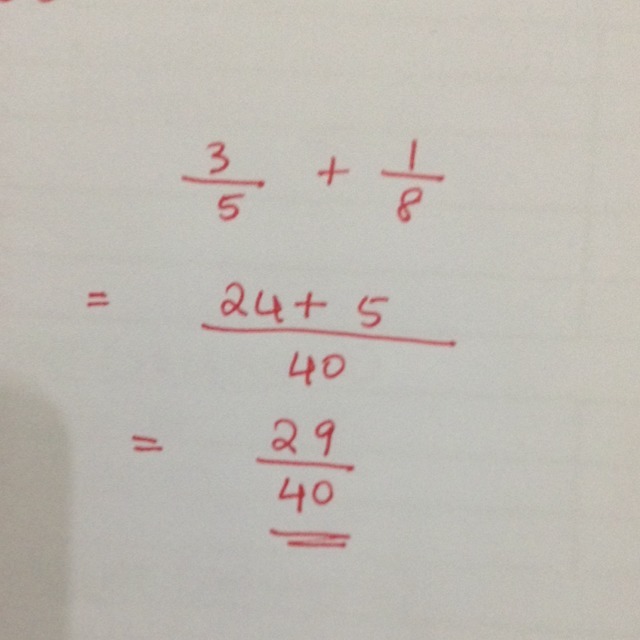 3/5 + 1/8
= 24 + 5/40
= 29/40